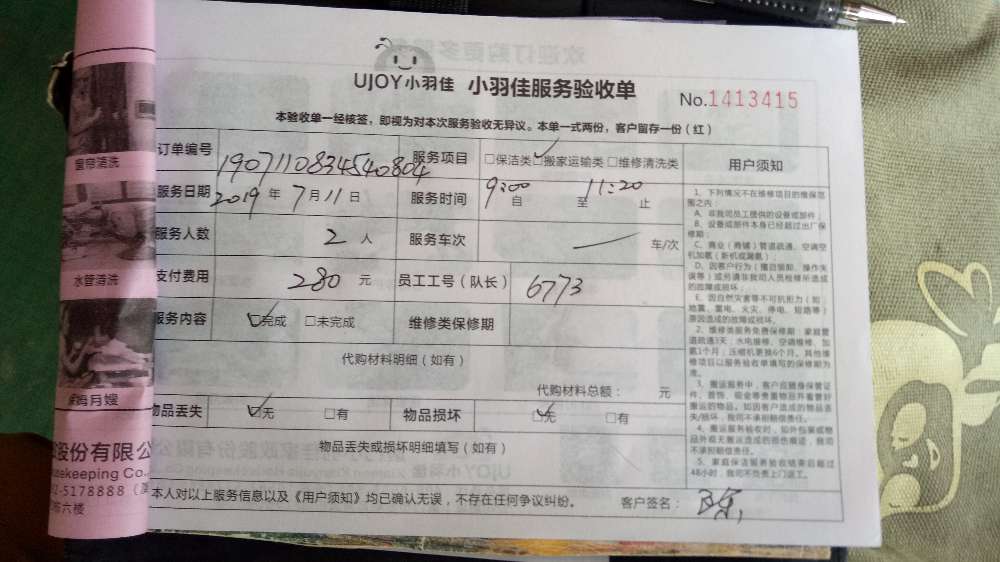 UJOY小羽佳 小羽佳服务验收单 No.1413415
本验收单一经核签，即视为对本次服务验收无异议。本单一式两份，客户留存一份（红）
订单编号 190711083454 0804 服务项目 □保洁类 ☑搬家运输类 □维修清洗类 用户须知
服务日期 2019 年 7 月 11 日 服务时间 9:00 自 至 11:20 止
服务人数 2 人 服务车次 — 车/次
支付费用 280 元 员工工号（队长） 6773
服务内容 ☑完成 □未完成 维修类保修期
代购材料明细（如有）
代购材料总额： 元
物品丢失 ☑无 □有 物品损坏 ☑无 □有
物品丢失或损坏明细填写（如有）
本人对以上服务信息以及《用户须知》均已确认无误，不存在任何争议纠纷。 客户签名：
1、下列情况不在维修项目的维保范
围之内：
A、非我司员工提供的设备或部件；
B、设备或部件本身已经超过出厂保
修期；
C、商业（商铺）管道疏通、空调空
机加氟（新机或漏氟）；
D、因客户行为（擅自装卸、操作失
误等）或另请非我司人员检修所造成
的故障或损坏；
E、因自然灾害等不可抗拒力（如：
地震、雷电、火灾、停电、短路等）
原因造成的故障或损坏。
2、维修类服务免费保修期：家庭管
道疏通3天；水电维修、空调维修、加
氟1个月；压缩机更换6个月。其他维
修项目以服务验收单填写的保修期为
准。
3、搬运服务中，客户应随身保管证
件、首饰、现金等贵重物品并看管好
搬运的物品。如因客户造成的物品丢
失/损坏，我司不承担赔偿责任。
4、搬运服务验收时，如外包装或物
品外观无搬运造成的损伤痕迹，我司
不承担赔偿责任。
5、家庭保洁服务验收结束后超过
48小时，我司不负责上门返工。
窗帘清洗
水管清洗
月嫂
股份有限公
ekeeping Co.
2-5178888
六楼